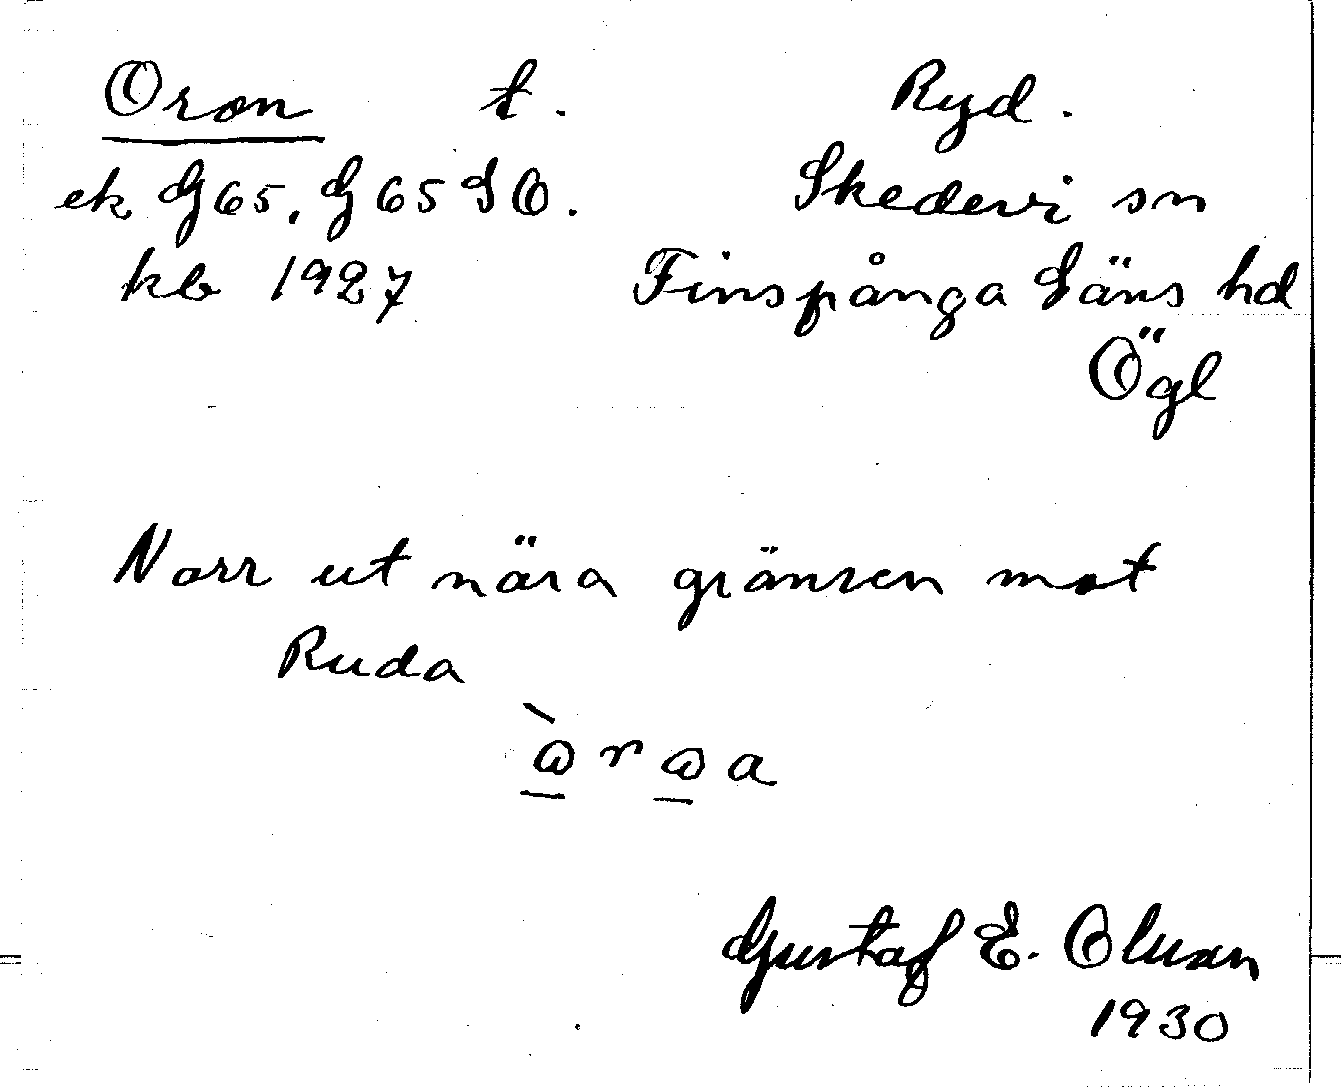 Oron t. Ryd.
ek G65. G65 SO. Skedevi sn
kb 1927 Finspånga Läns hd
Ögl
Norr ut nära gränsen mot
Ruda
Gustaf E. Olsson
1930